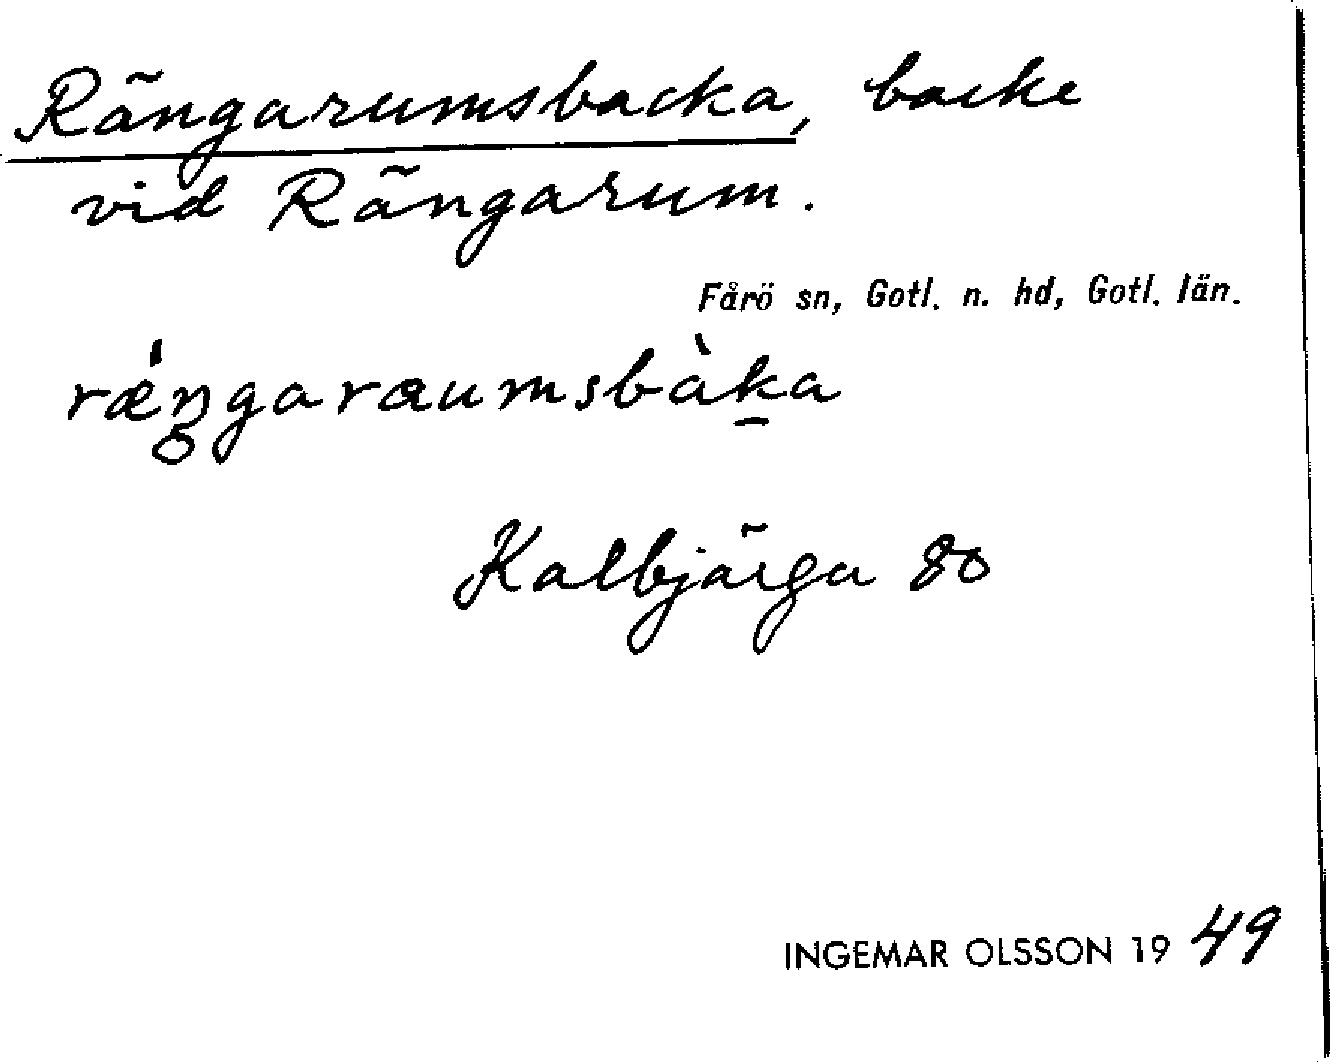 Rängarumsbacka, backe
vid Rängarum.
Fårö sn, Gotl. n. hd, Gotl. län.
ræ̀ŋgaraumsbàk̠a
Kalbjärga 80
INGEMAR OLSSON 19 49